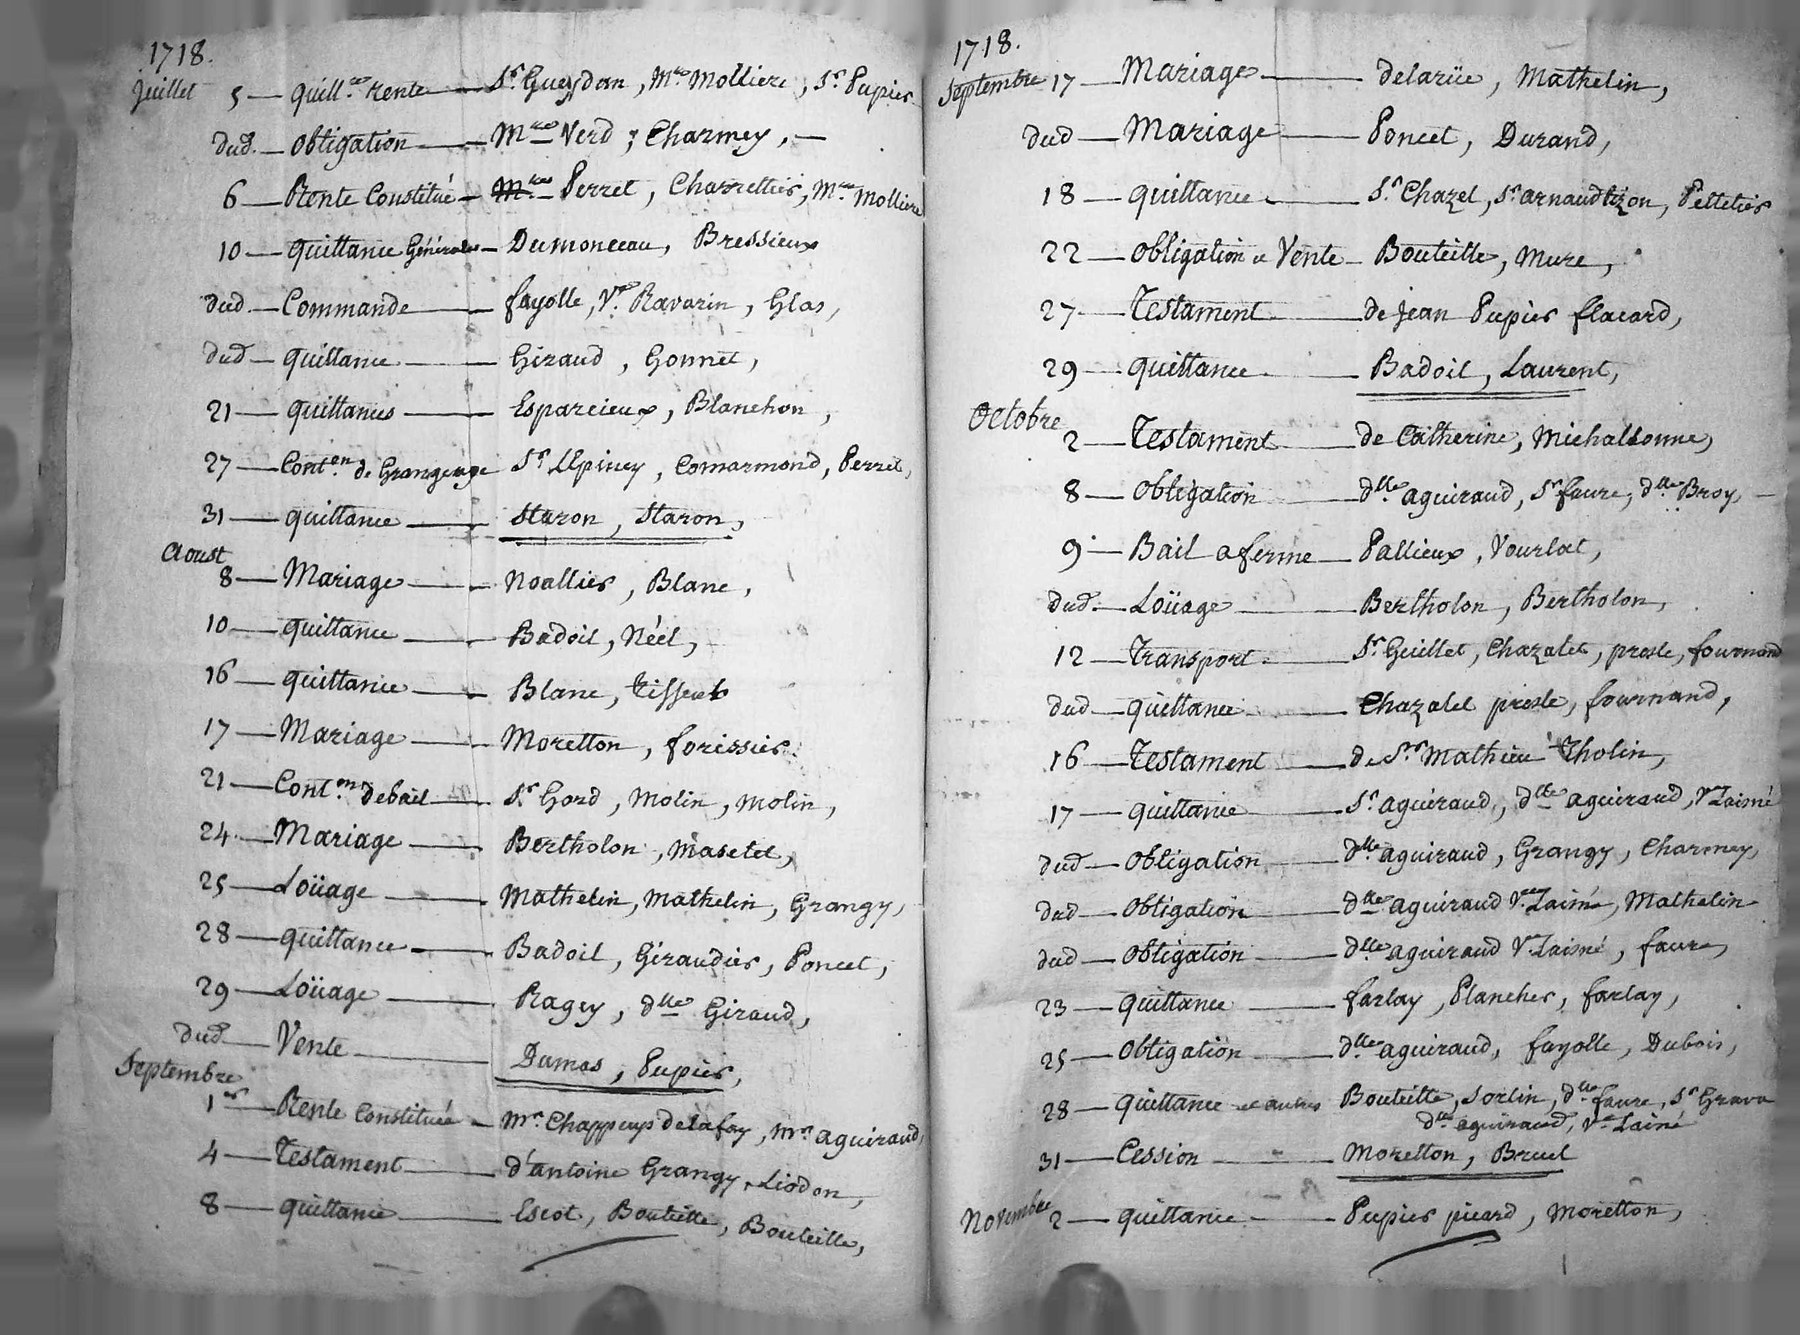 1718.
Juillet 5 — quill.ce rente — Sr. Gueydon, Mre Molliere, Sr. Pupier
dud. — obligation — Mre Verd, Charmey, —
6 — Rente Constitué — Perret, Charrettier, Mre Molliere
10 — quittance Générale — Dumonceau, Bressieux
dud — Commande — fayolle, Ve. Ravarin, Glas,
dud — quittance — Giraud, Gonnet,
21 — quittances — Esparcieux, Blanchon,
27 — Conton. de Grangeage Sr. LEpiney, Comarmond, Perret,
31 — quittance — Staron, Staron,
Aoust
8 — Mariage — Noallier, Blanc,
10 — quittance — Badoil, Néel,
16 — quittance — Blanc, tisseur
17 — Mariage — Moretton, forissier
21 — Conton. de bail — Sr. Gord, Molin, Molin,
24 — Mariage — Bertholon, Masetet,
25 — Loüage — Mathelin, Mathelin, Grangy,
28 — quittance — Badoil, Giraudier, Poncet,
29 — Loüage — Ragey, dlle Giraud,
dud — Vente — Dumas, Pupier,
Septembre
1er — Rente Constituée — Mr. Chappuys de la fay, Mr. aguiraud,
4 — Testament — d'antoine Grangy, Liodon,
8 — quittance — Escot, Bouteille, Bouteille,
1718.
Septembre 17 — Mariage — delarüe, Mathelin,
dud — Mariage — Poncet, Durand,
18 — quittance — Sr. Chazel, Sr. arnaud tizon, Pelletier
22 — obligation et Vente — Bouteille, Mure,
27 — Testament — de Jean Pupier flacard,
29 — quittance — Badoil, Laurent,
Octobre
2 — Testament — de Catherine, Michallonne,
8 — obligation — dlle aguiraud, Sr. faure, dlle Broy, —
9 — Bail a ferme — Pallieux, Vourlat,
dud. — Loüage — Bertholon, Bertholon,
12 — Transport — Sr. Guillet, Chazalet, presle, fournand
dud — quittance — Chazalet presle, fournand,
16 — Testament — de Sr. Mathieu Tholin,
17 — quittance — Sr. aguiraud, dlle aguiraud, Ve Lainé
dud — obligation — dlle aguiraud, Grangy, Charmey,
dud — obligation — dlle aguiraud Ve. Lainé, Mathelin
dud — obligation — dlle aguiraud Ve. Lainé, faure,
23 — quittance — farlay, Plancher, farlay,
25 — obligation — dlle aguiraud, fayolle, Dubois,
28 — quittance et autres Bouteille, Sorlin, dlle faure, Sr Grava
dlle aguiraud, Ve Lainé
31 — Cession — Moretton, Bruel
Novembre 2 — quittance — Pupier picard, Moretton,